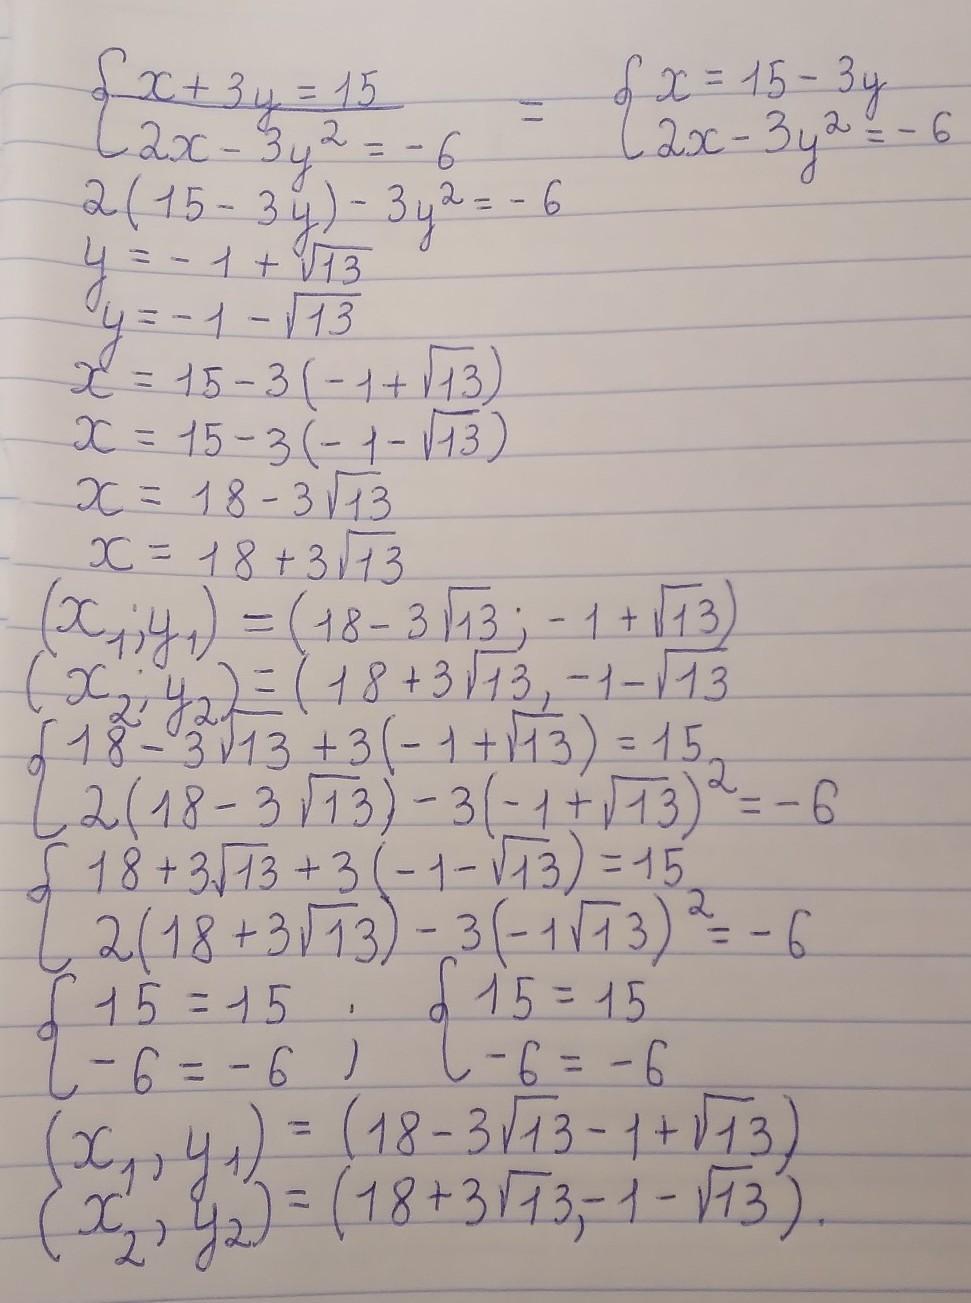 { x + 3y = 15 = { x = 15 - 3y
2x - 3y² = - 6 2x - 3y² = - 6
2(15 - 3y) - 3y² = - 6
y = - 1 + √13
y = - 1 - √13
x = 15 - 3(-1 + √13)
x = 15 - 3(-1 - √13)
x = 18 - 3√13
x = 18 + 3√13
(x₁; y₁) = (18 - 3√13; - 1 + √13)
(x₂; y₂) = (18 + 3√13, -1 - √13
{ 18 - 3√13 + 3(-1 + √13) = 15
2(18 - 3√13) - 3(-1 + √13)² = - 6
{ 18 + 3√13 + 3(-1 - √13) = 15
2(18 + 3√13) - 3(-1√13)² = - 6
{ 15 = 15 ; { 15 = 15
- 6 = - 6 - 6 = - 6
(x₁, y₁) = (18 - 3√13 - 1 + √13)
(x₂, y₂) = (18 + 3√13, - 1 - √13).